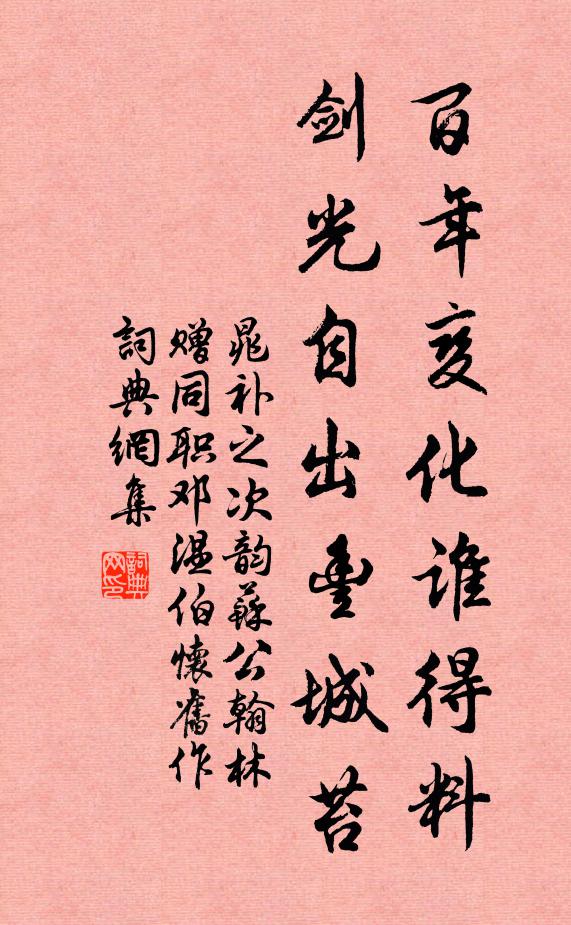 百年变化谁得料
剑光自出豊城苔
晁补之次韵蘇公翰林
赠同职邓温伯懷舊作
詞典網集
詞典网印